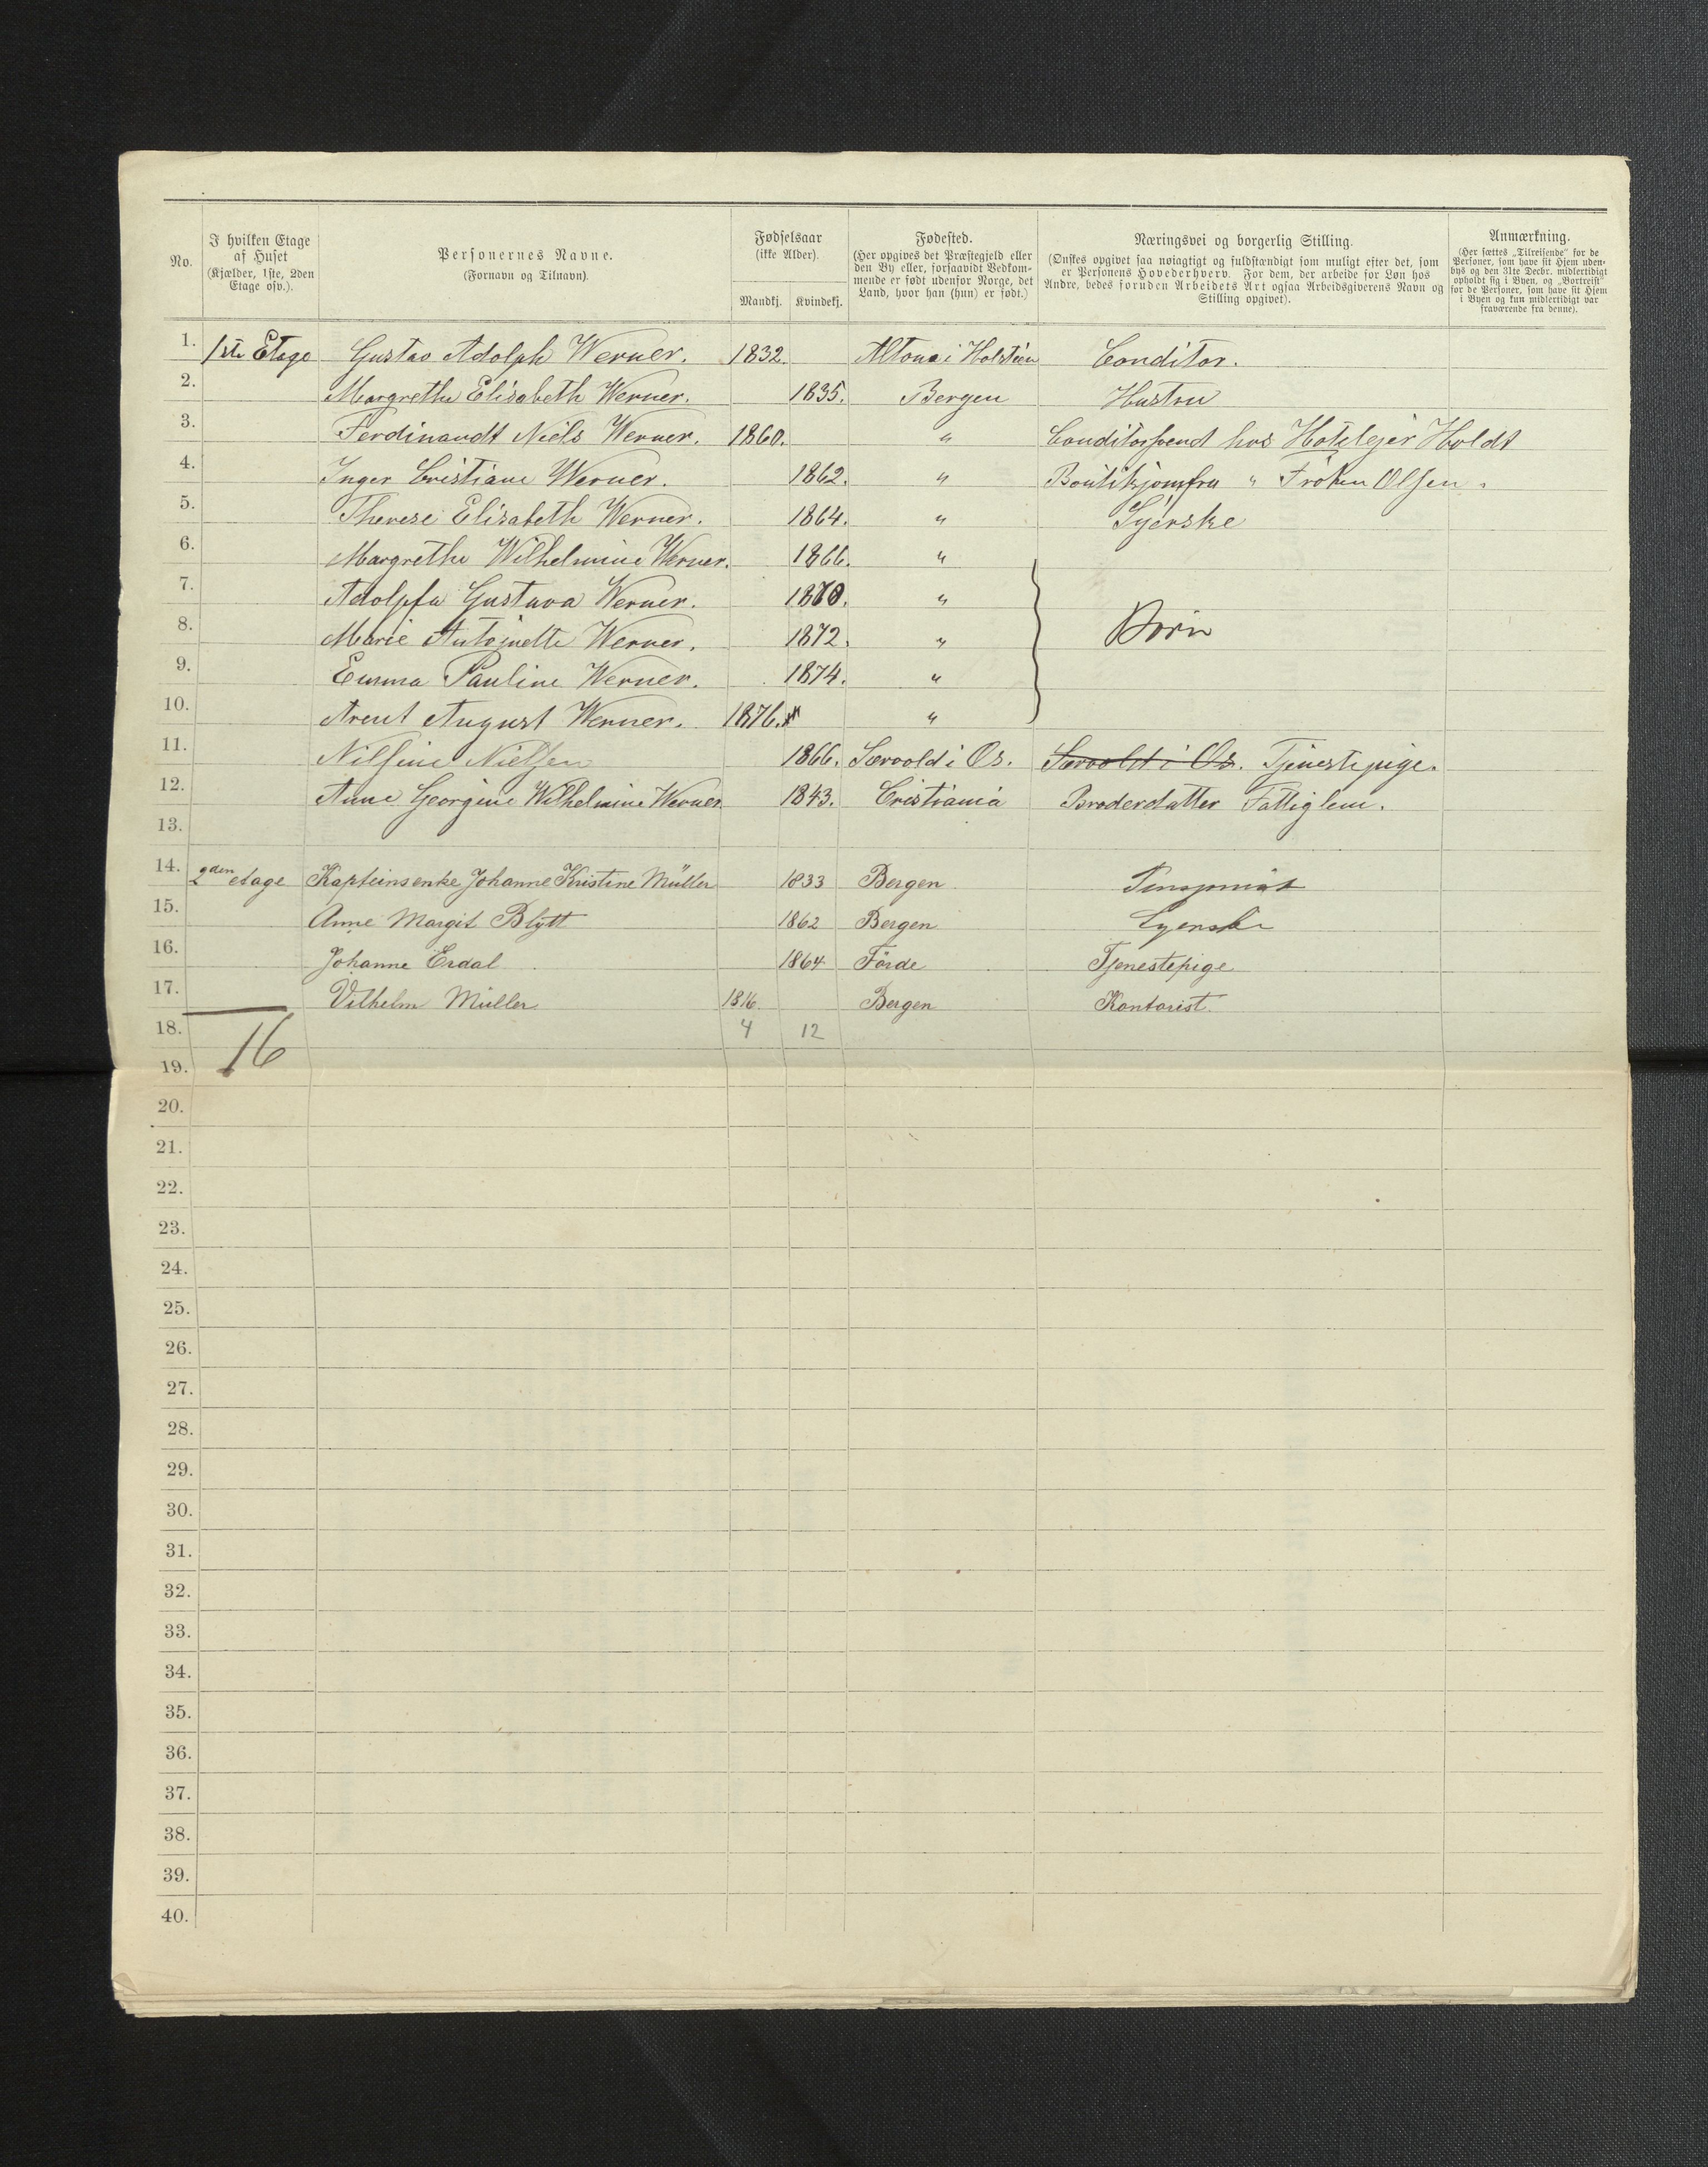 No.
I hvilken Etage af Huset (Kjælder, 1ste, 2den Etage osv.).
Personernes Navne. (Fornavn og Tilnavn).
Fødselsaar (ikke Alder). Mandkj. Kvindekj.
Fødested. (Her opgives det Præstegjeld eller den By eller, forsaavidt Vedkommende er født udenfor Norge, det Land, hvor han (hun) er født.)
Næringsvei og borgerlig Stilling. (Ønskes opgivet saa nøiagtigt og fuldstændigt som muligt efter det, som er Personens Hovederhverv. For dem, der arbeide for Løn hos Andre, bedes foruden Arbeidets Art ogsaa Arbeidsgiverens Navn og Stilling opgivet).
Anmærkning. (Her sættes „Tilreisende" for de Personer, som have sit Hjem udenbys og den 31te Decbr. midlertidigt opholdt sig i Byen, og „Bortreist" for de Personer, som have sit Hjem i Byen og kun midlertidigt var fraværende fra denne).
1. 1ste Etage Gustav Adolph Werner. 1832. Altona i Holstein Conditor.
2. Margrethe Elisabeth Werner. 1835. Bergen Hustru
3. Ferdinandt Niels Werner. 1860. " Conditorsvend hos Hotelejer Holdt
4. Inger Cristiane Werner. 1862. " Boutikjomfru " Frøken Olsen.
5. Therese Elisabeth Werner. 1864. " Syerske
6. Margrethe Wilhelmine Werner. 1866. "
7. Adolpfa Gustava Werner. 1870. "
8. Marie Antoinette Werner. 1872. " Børn
9. Emma Pauline Werner. 1874. "
10. Arent August Werner. 1876. "
11. Nilsine Nielsen 1866. Særvold i Os. Særvold i Os. Tjenestepige.
12. Anne Georgine Wilhelmine Werner 1843. Cristiania Broderdatter Fattiglem.
13.
14. 2den etage Kapteinsenke Johanne Kristine Müller 1833 Bergen
15. Anne Margit Blytt 1862 Bergen Syerske
16. Johanne Erdal 1864 Förde Tjenestepige
17. Vilhelm Müller 1816. Bergen Kontorist.
18. 16 4 12
19.
20.
21.
22.
23.
24.
25.
26.
27.
28.
29.
30.
31.
32.
33.
34.
35.
36.
37.
38.
39.
40.